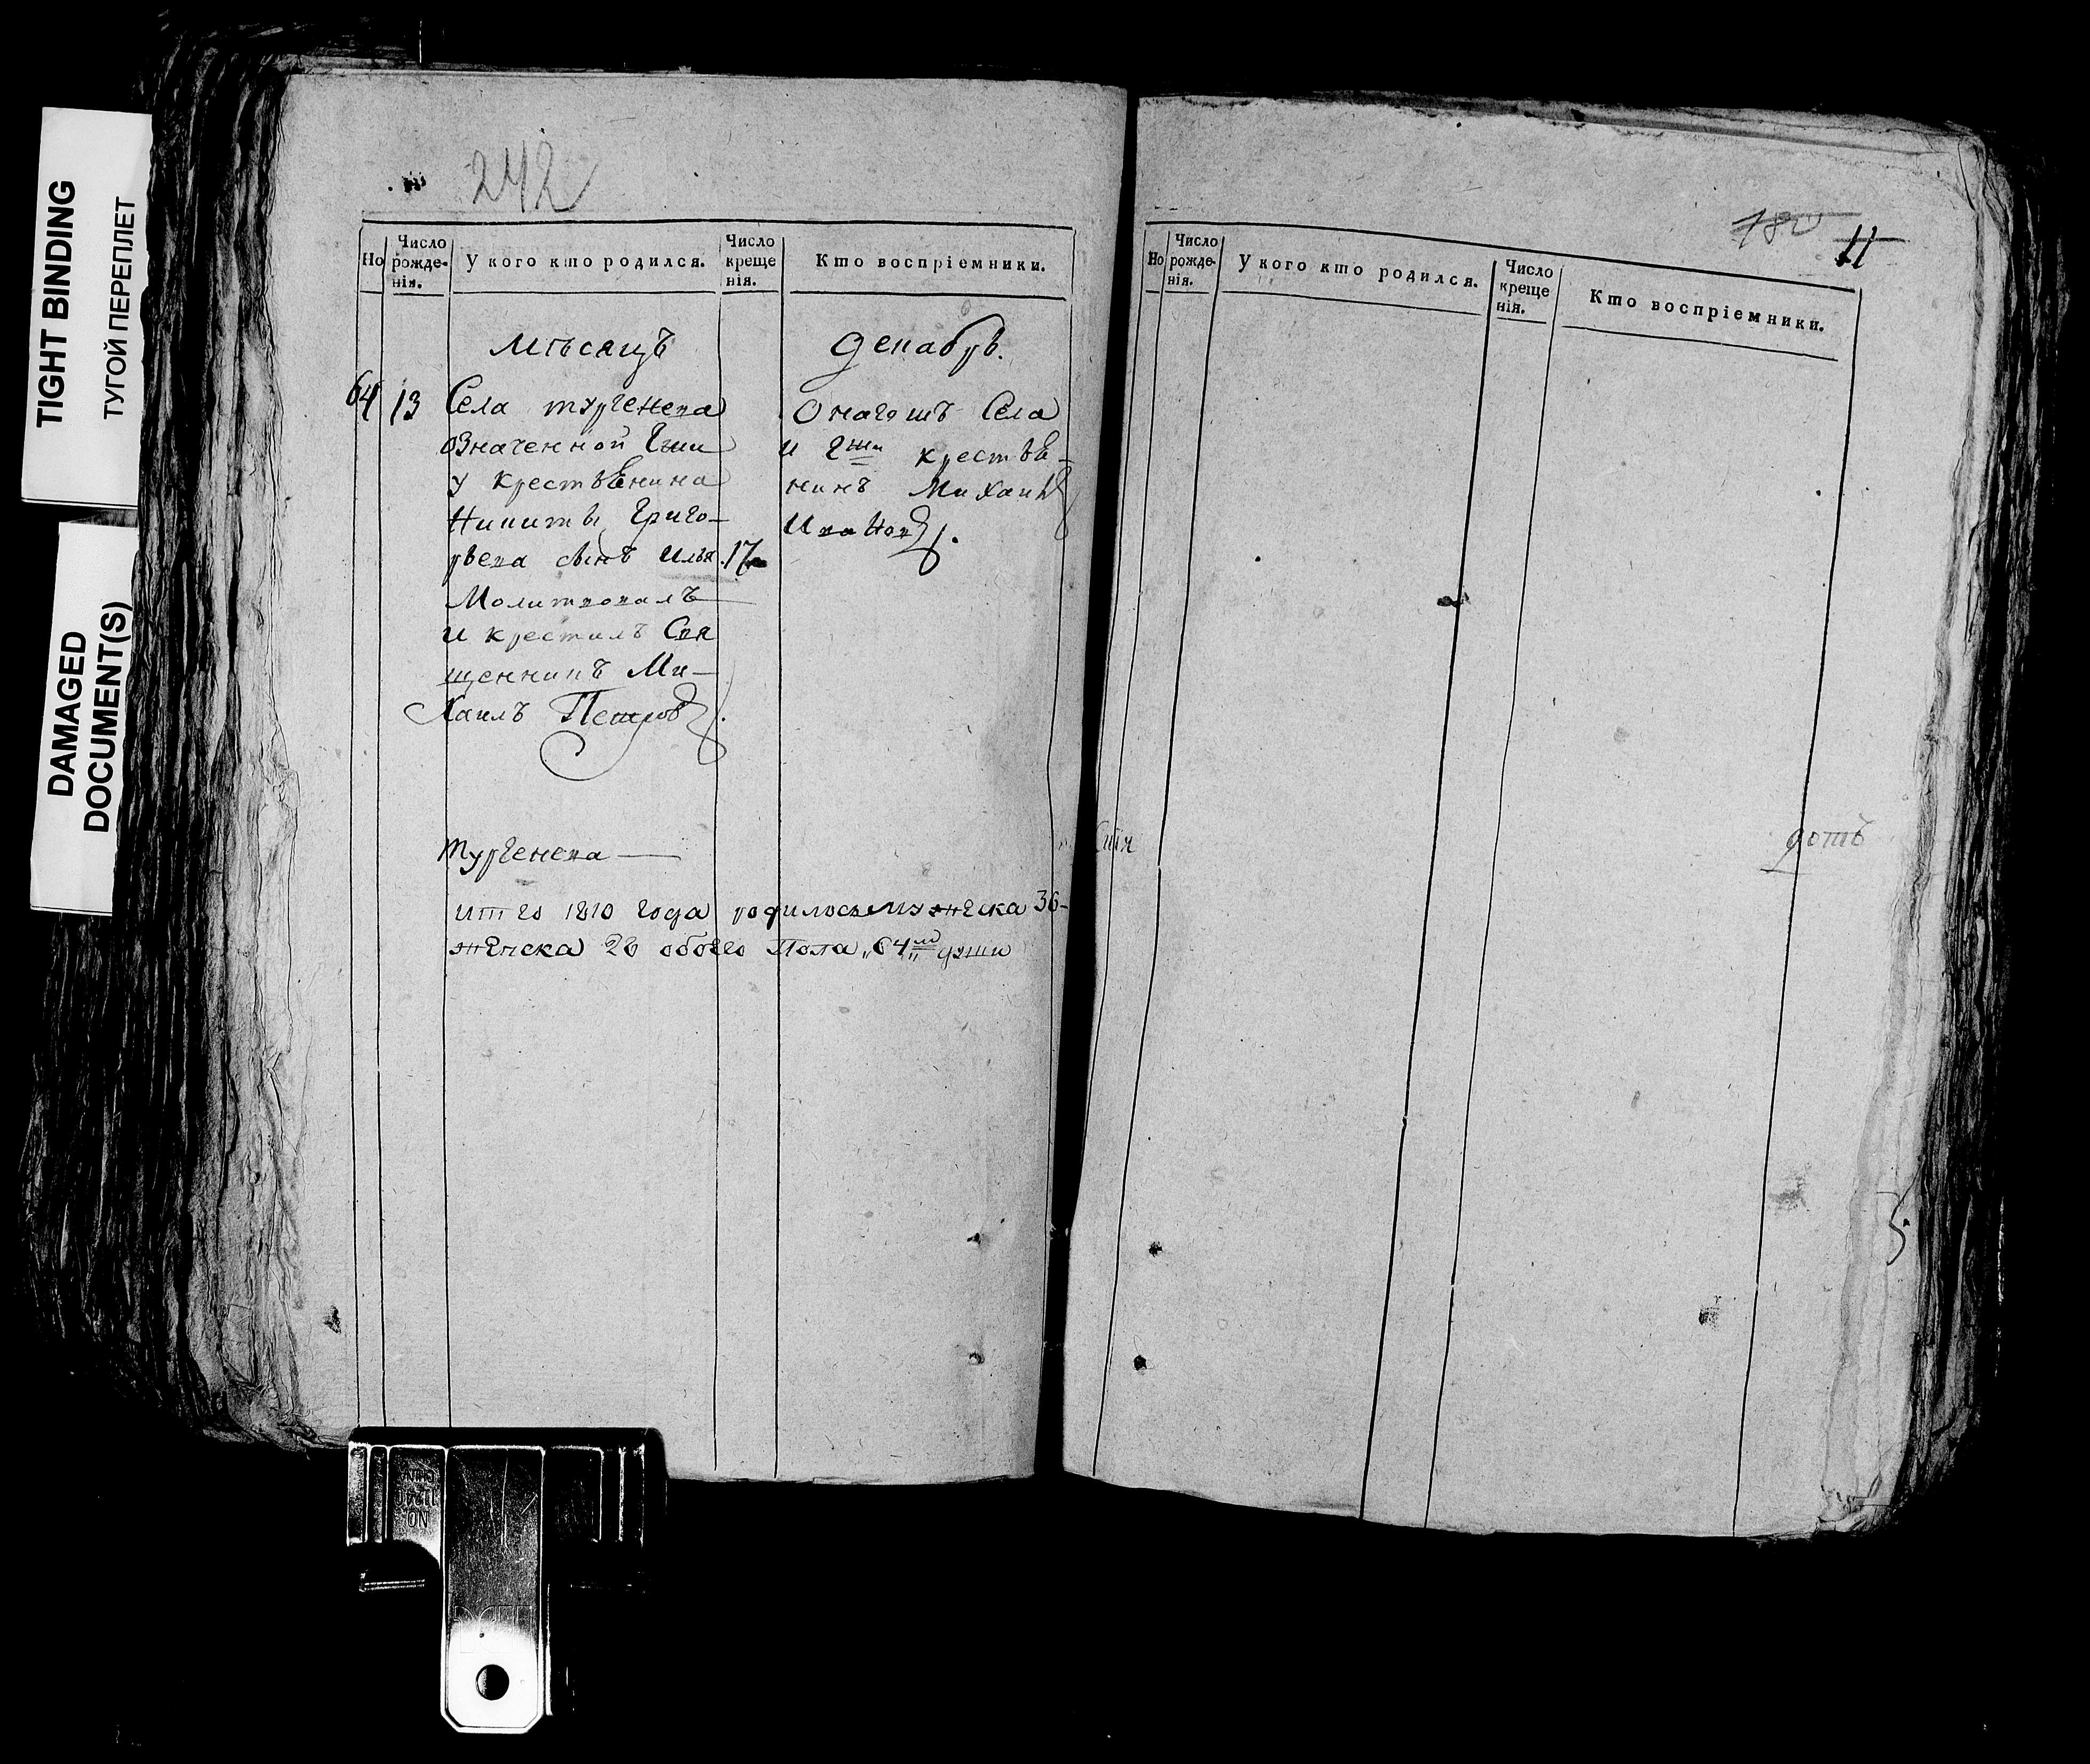 TIGHT BINDING
ТУГОЙ ПЕРЕПЛЕТ
DAMAGED
DOCUMENT(S)
242
Но
Число рожде- нія.
У кого кто родился.
Число креще нія.
Кто воспріемники.
мѣсяцъ декабрь.
64 13 Села тургенева
означенной Гжи
у крестьянина
Никиты Григо-
рьева сынъ Илья 17
Молитвовалъ
и крестилъ Свя
щенникъ Ми-
хаилъ Петровъ.
Онагожъ Села
и Гжи крестья-
нинъ Михаилъ
Ивановъ.
тургенева
итого 1810 года родилось мужеска 36
женска 28 обоего пола „64„ души
780 11
Но
Число рожде- нія.
У кого кто родился.
Число креще нія.
Кто воспріемники.